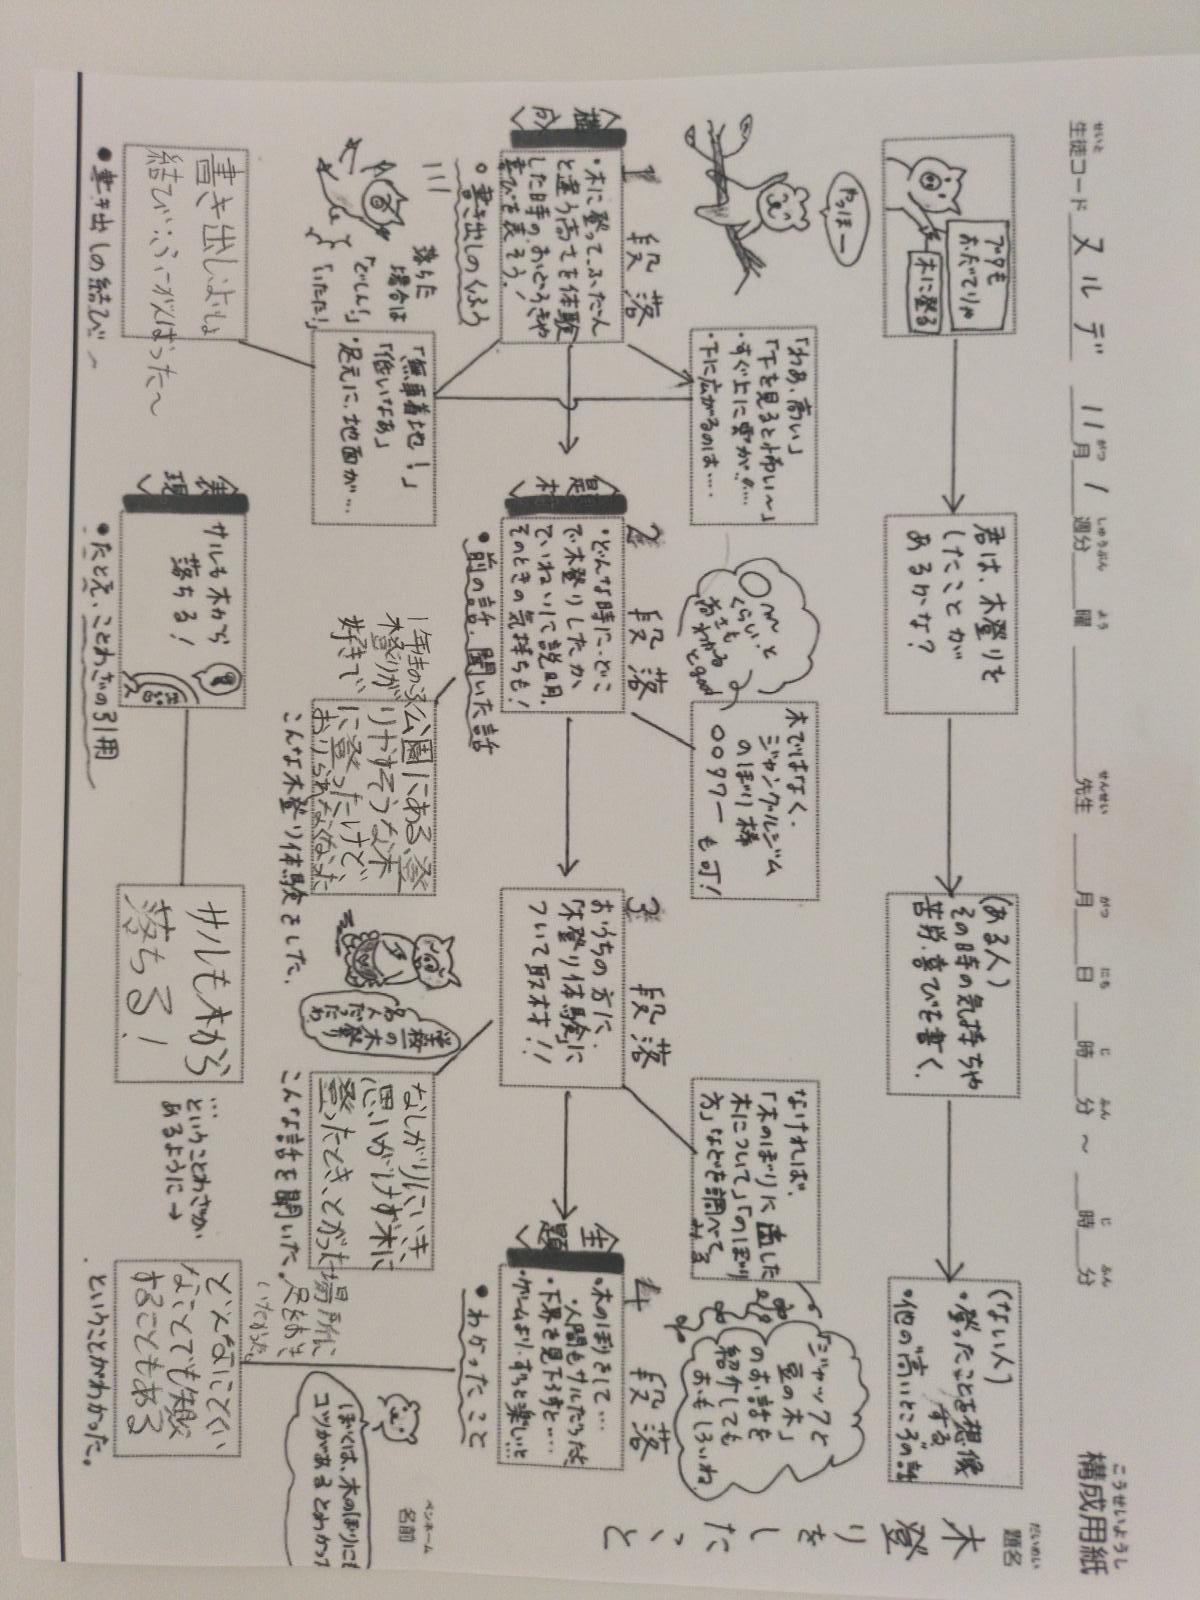 構成用紙
こうせいようし
題名
だいめい
木登りをしたこと
生徒コード
せいと
スルデ
11月1週分
がつ
しゅうぶん
曜
よう
先生
せんせい
月
がつ
日
にち
時
じ
分
ふん
～
時
じ
分
ふん
名前
ペンネーム
ブタも
おだてりゃ
木に登る
君は、木登りを
したことが
あるかな?
(ある人)
その時の気持ちや
苦労・喜びを書く。
(ない人)
・登ったことを想像
する
・他の"高いところ"の話
やっほー
「わあ、高い」
「下を見るとこわい〜」
・すぐ上に雲が…
・下に広がるのは…
〜くらい。と
高さも
わかる
とgood
木ではなく、
ジャングルジム
のぼり棒
○○タワー も可!
なければ、
「木のぼりに適した
木について」「のぼり
方」などを調べて
みる
「ジャックと
豆の木」
のお話を
紹介しても
おもしろいね。
1 段落
〈構成〉
・木に登って、ふだん
と違う高さを体験
した時のおどろきや
喜びを表そう!
○書き出しのくふう
2 段落
〈題材〉
・どんな時に、どこ
で木登りしたか、
ていねいに説明。
そのときの気持ちも!
●前の話、聞いた話
3 段落
おうちの方に、
「木登り体験」に
ついて取材!!
4 段落
〈主題〉
・木のぼりをして…
・人間もサルだった
・下界を見下ろすと…
・ゲームより、ずっと楽しい…
●わかったこと
落ちた
場合は
「どしん!」
「いたた!」
「無事着地!」
「低いなあ」
・足元に、地面が…
1年生のころ
木登りが
好きで
公園にある、登
りやすそうな木
に登ったけど、
おりられなくなった
こんな木登り体験をした。
なしがりにいき、
思いがけず木に
登ったとき、とがった
場所に
足をおき
いたかった。
こんな話を聞いた。
ぼくは、木のぼりにも
コツがあるとわかって
書き出し…よいしょ
結び…ふ〜がんばった〜
●書き出しの結び〜
〈表現〉
サルも木から
落ちる!
●たとえ、ことわざの引用
サルも木から
落ちる!
…ということわざが
あるように→
どんなにとくい
なことでも失敗
することもある
ということがわかった。